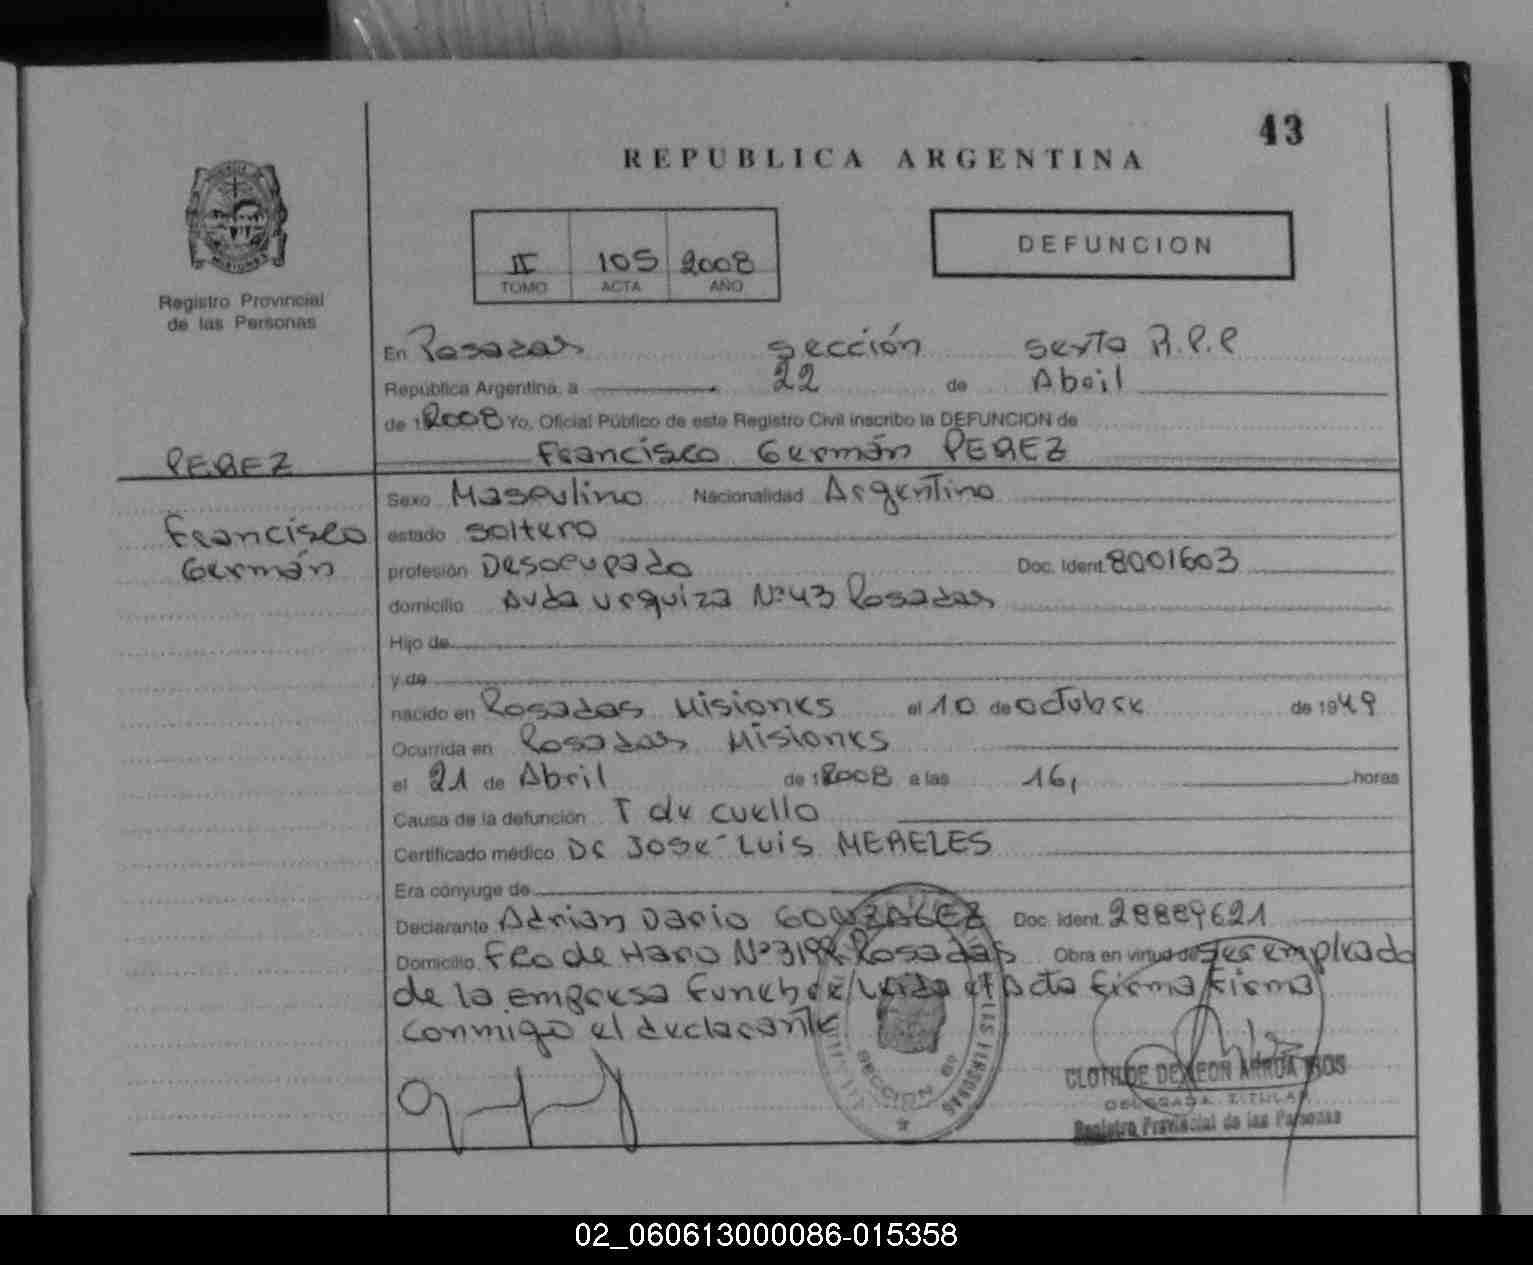 43
REPUBLICA ARGENTINA
MISIONES
Registro Provincial
de las Personas
II 105 2008
TOMO ACTA AÑO
DEFUNCION
En Posadas sección sexta R.P.P
República Argentina, a 22 de Abril
de 12008 Yo, Oficial Público de este Registro Civil inscribo la DEFUNCION de
Francisco Germán PEREZ
PEREZ
Francisco
Germán
Sexo Masculino Nacionalidad Argentino
estado soltero
profesión Desocupado Doc. Ident. 8001603
domicilio Avda Urquiza Nº43 Posadas
Hijo de
y de
nacido en Posadas Misiones el 10 de octubre de 1949
Ocurrida en Posadas Misiones
el 21 de Abril de 12008 a las 16, horas
Causa de la defunción T de cuello
Certificado médico Dr José Luis MERELES
Era cónyuge de
Declarante Adrian Dario GONZALEZ Doc. Ident. 28889621
Domicilio Fco de Haro Nº3198 Posadas Obra en virtud de ser empleado
de la empresa funebre/Leida el Acta firma firma
conmigo el declarante
SECCION 6ª
CLOTILDE DE LEON ARRUA RIOS
DELEGADA TITULAR
Registro Provincial de las Personas
02_060613000086-015358